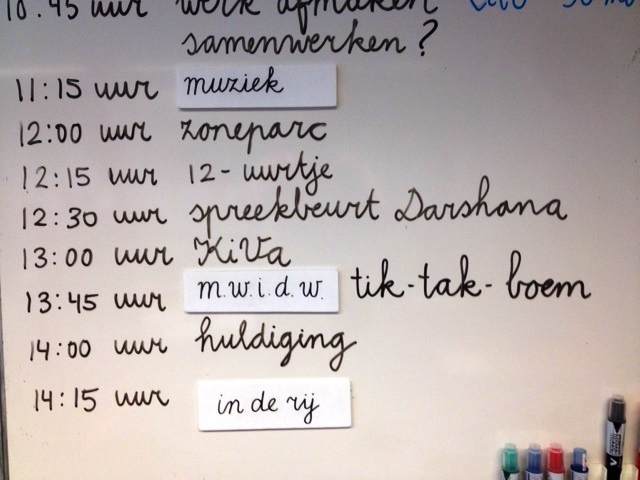 10:45 uur werk afmaken
samenwerken?
11:15 uur muziek
12:00 uur zoneparc
12:15 uur 12-uurtje
12:30 uur spreekbeurt Darshana
13:00 uur KiVa
13:45 uur m.w.i.d.w. tik-tak-boem
14:00 uur huldiging
14:15 uur in de rij